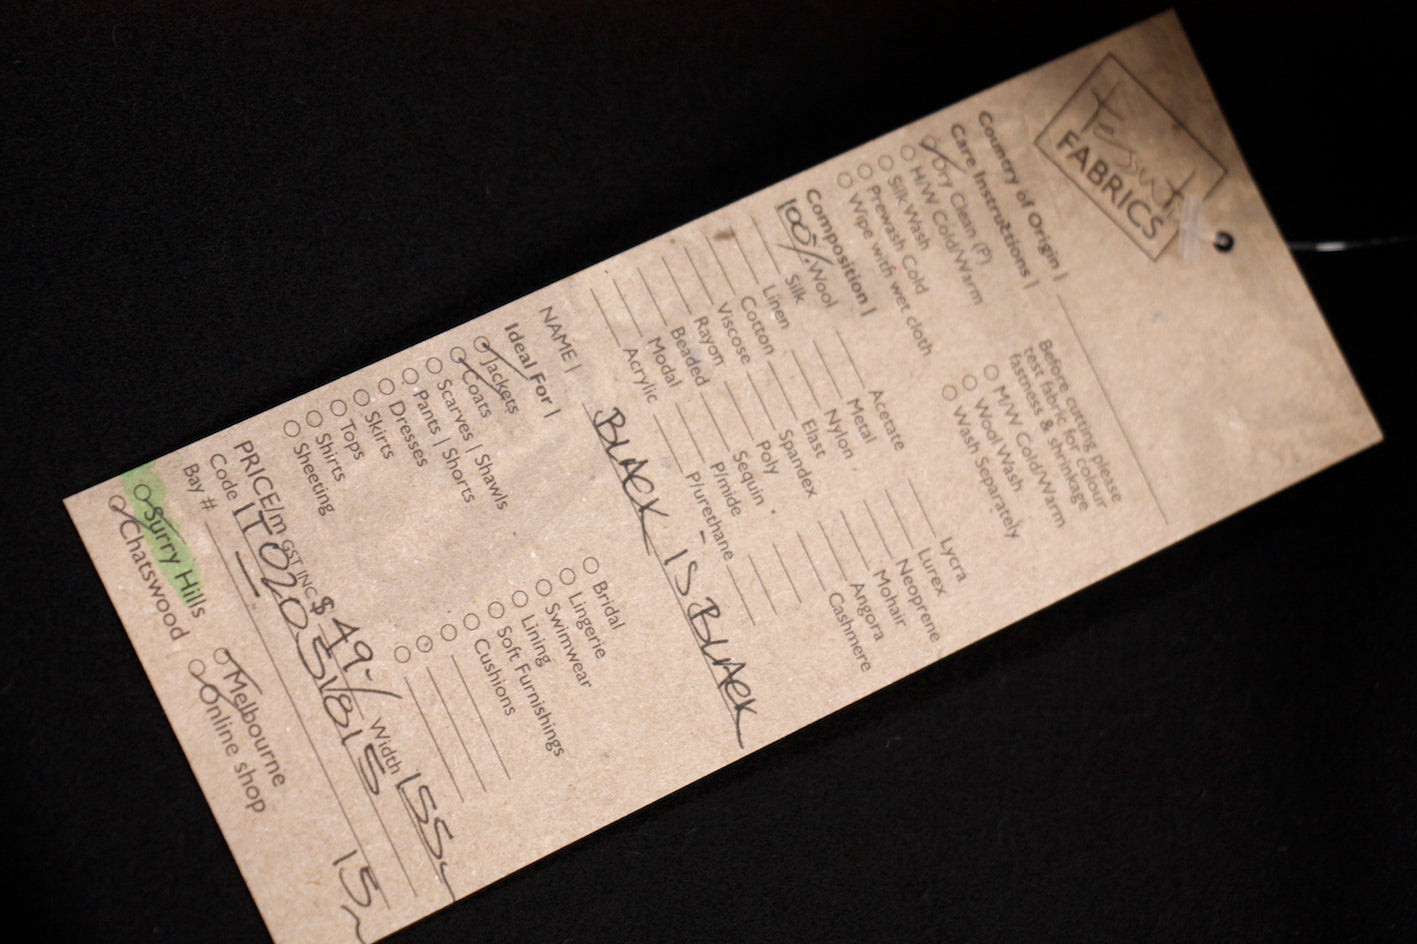 tessuti
FABRICS
Country of Origin |
Care Instructions |
Dry Clean (P)
H/W Cold/Warm
Silk Wash
Prewash Cold
Wipe with wet cloth
Before cutting please
test fabric for colour
fastness & shrinkage
M/W Cold/Warm
Wool Wash
Wash Separately
Composition |
100% Wool
Silk
Linen
Cotton
Viscose
Rayon
Beaded
Modal
Acrylic
Acetate
Metal
Nylon
Elast
Spandex
Poly
Sequin
P/mide
P/urethane
Lycra
Lurex
Neoprene
Mohair
Angora
Cashmere
NAME | BLACK IS BLACK
Ideal For |
Jackets
Coats
Scarves | Shawls
Pants | Shorts
Dresses
Skirts
Tops
Shirts
Sheeting
Bridal
Lingerie
Swimwear
Lining
Soft Furnishings
Cushions
PRICE/m GST INC $ 49.- Width 155
Code
Bay #
Surry Hills
Chatswood
Melbourne
Online shop